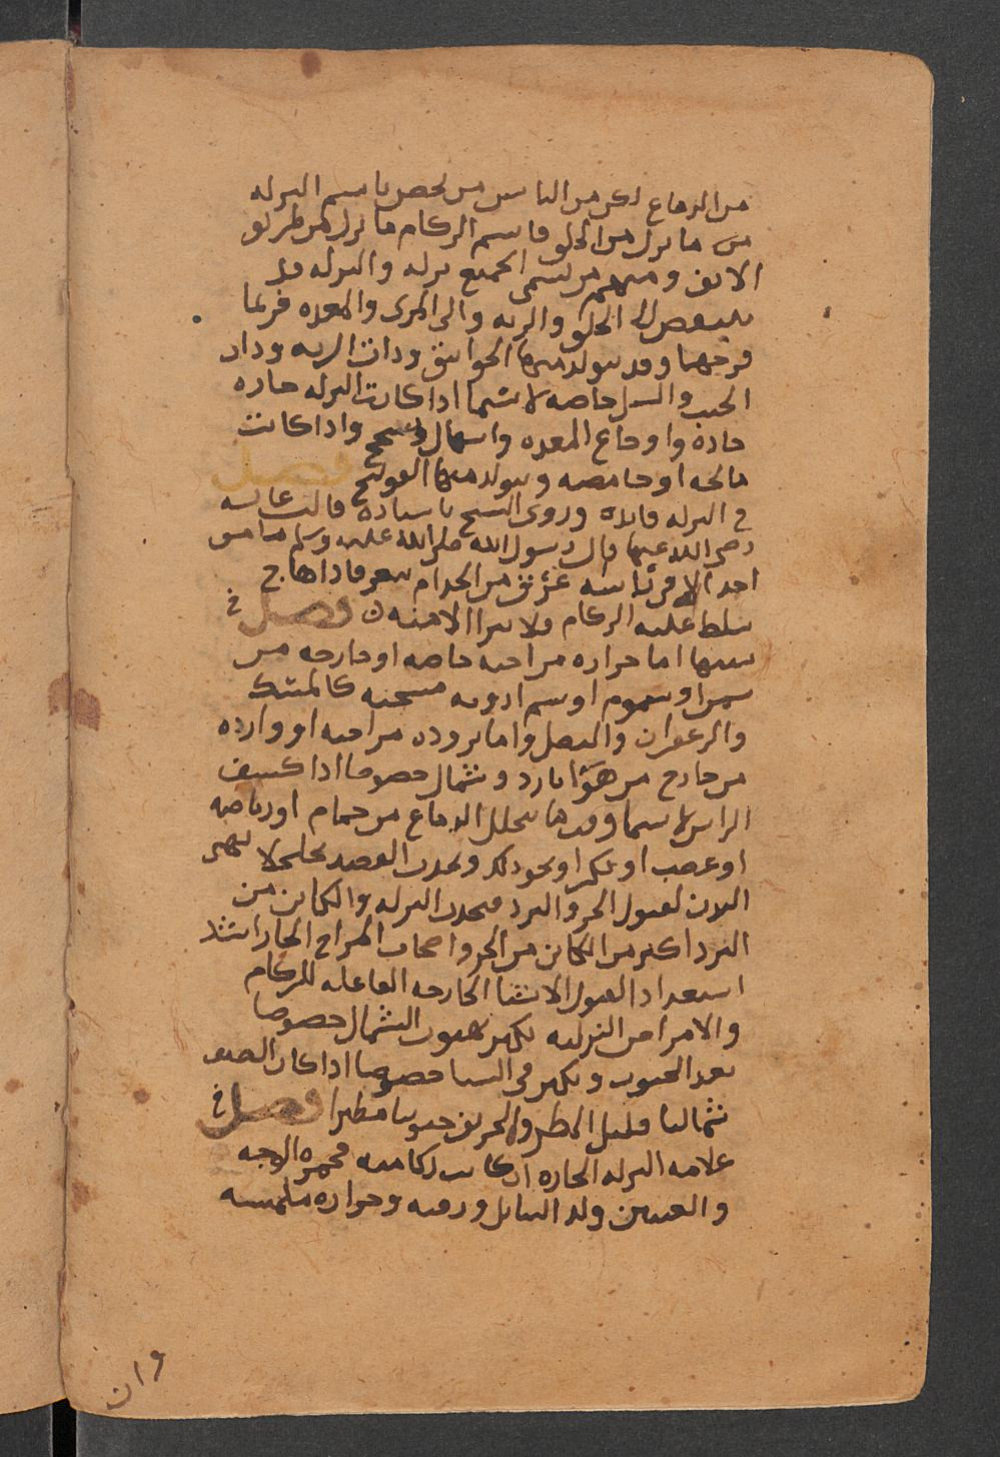 من الدماغ لكن من الناس من يخص باسم النزلة
من ما نزل من الحلق وباسم الزكام ما نزل من طريق
الانف ومنهم من يسمى الجميع نزلة والنزلة قد
الى الحلق والرية والى المرى والمعدة فربما
قرحها وقد يتولد منها الخوانيق وذات الرية وذات
الجنب والسل خاصة لا سيما اذا كانت النزلة حارة
حادة واوجاع المعدة واسهال وسحج واذا كانت
مالحة او حامضة ويتولد منها القولنج فصل
في النزلة وروى الشيخ باسناده قالت عايشة
رضى الله عنها قال رسول الله صلى الله عليه وسلم ما من
احد الا فى راسه عرق من الجدام ينعر فاذا هاج
سلط عليه الزكام ن فصل في
سببها اما حرارة مزاجية خاصة او خارجة من
شمس او سموم او شم ادوية مسخنة كالمسك
والزعفران والبصل واما برودة مزاجية او واردة
من خارج من هوا بارد وشمال خصوصا اذا كشف
الراس لا سيما وقت ما يتخلل الدماغ من حمام او رياضة
او غضب او فكر او نحو ذلك ويحدث الفصد تخلخلا يهيى
البدن لقبول الحر والبرد فتحدث النزلة والكاين من
البرد اكثر من الكاين من الحر واصحاب المزاج الحار اشد
استعدادا لقبول الاشيا الخارجة الفاعلة للزكام
والامراض النزلية تكثر بهبوب الشمال خصوصا
بعد الجنوب وتكثر في الشتا خصوصا اذا كان الصيف
شماليا قليل المطر والخريف جنوبيا مطيرا فصل في
علامة النزلة الحارة ان كانت زكامية حمرة الوجه
والعينين ولذع السايل ورقته وحرارة ملمسه
وان